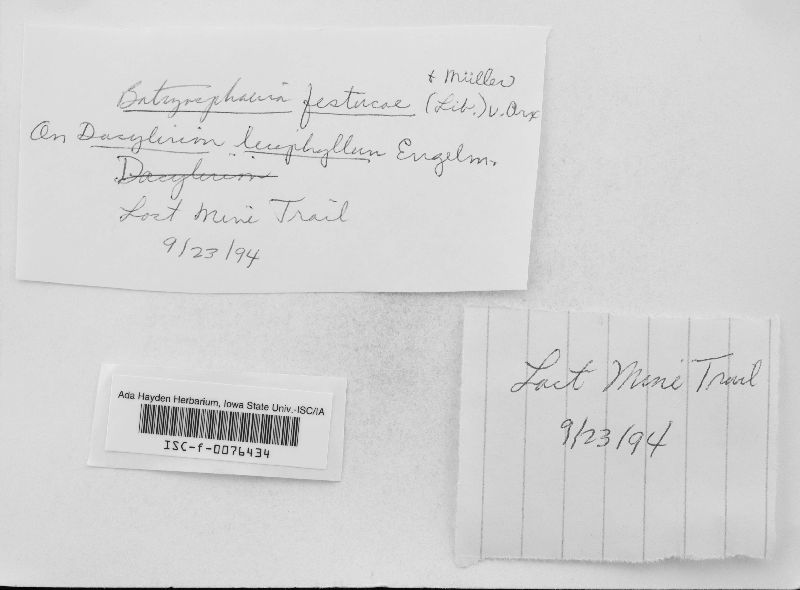 Botryosphaeria festucae (Lib.) v. Arx
+ Müller
On Dasylirion leiophyllum Engelm.
Dasylirion
Lost Mine Trail
9/23/94
Ada Hayden Herbarium, Iowa State Univ.-ISC/IA
ISC-f-0076434
Lost Mine Trail
9/23/94